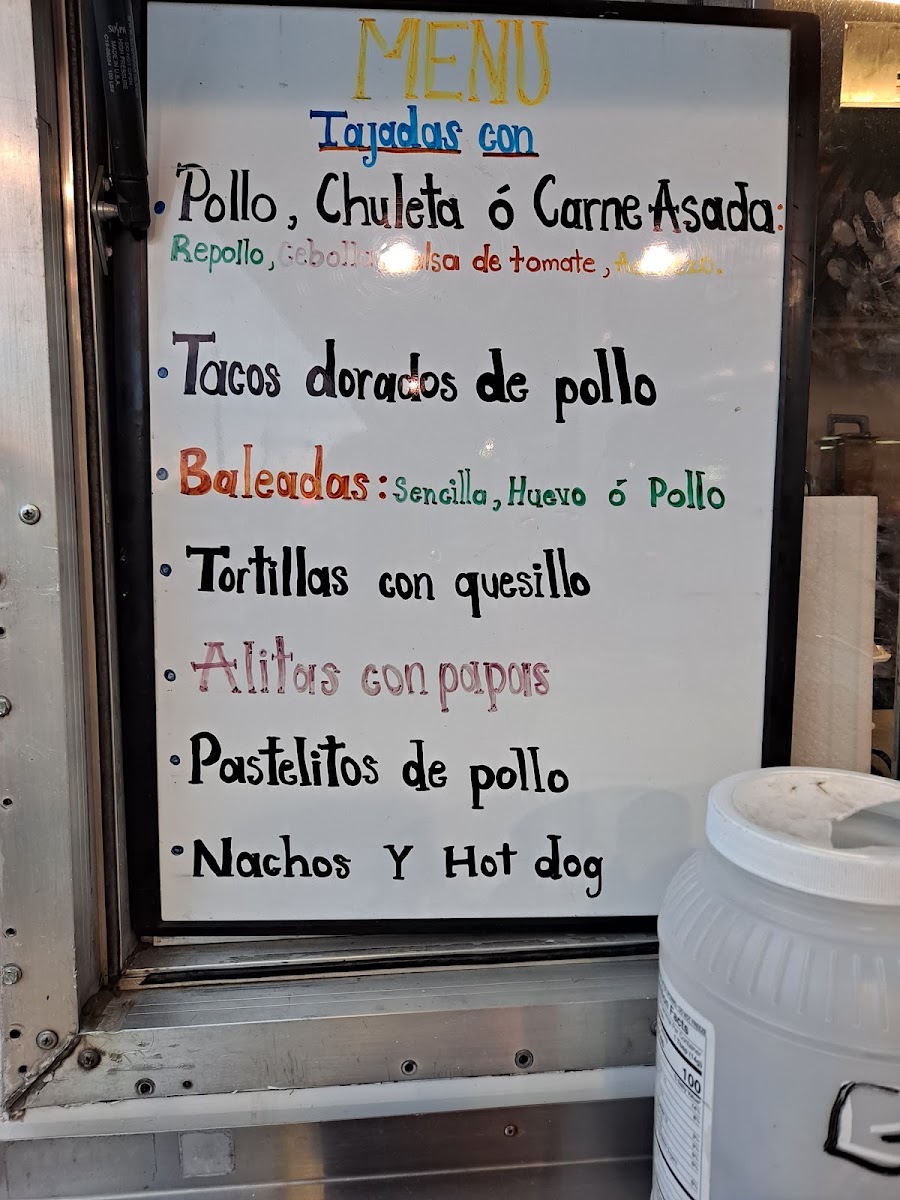 MENU
Tajadas con
• Pollo, Chuleta ó Carne Asada:
Repollo, Cebolla, Salsa de tomate,
• Tacos dorados de pollo
• Baleadas: Sencilla, Huevo ó Pollo
• Tortillas con quesillo
• Alitas con papas
• Pastelitos de pollo
• Nachos Y Hot dog
100